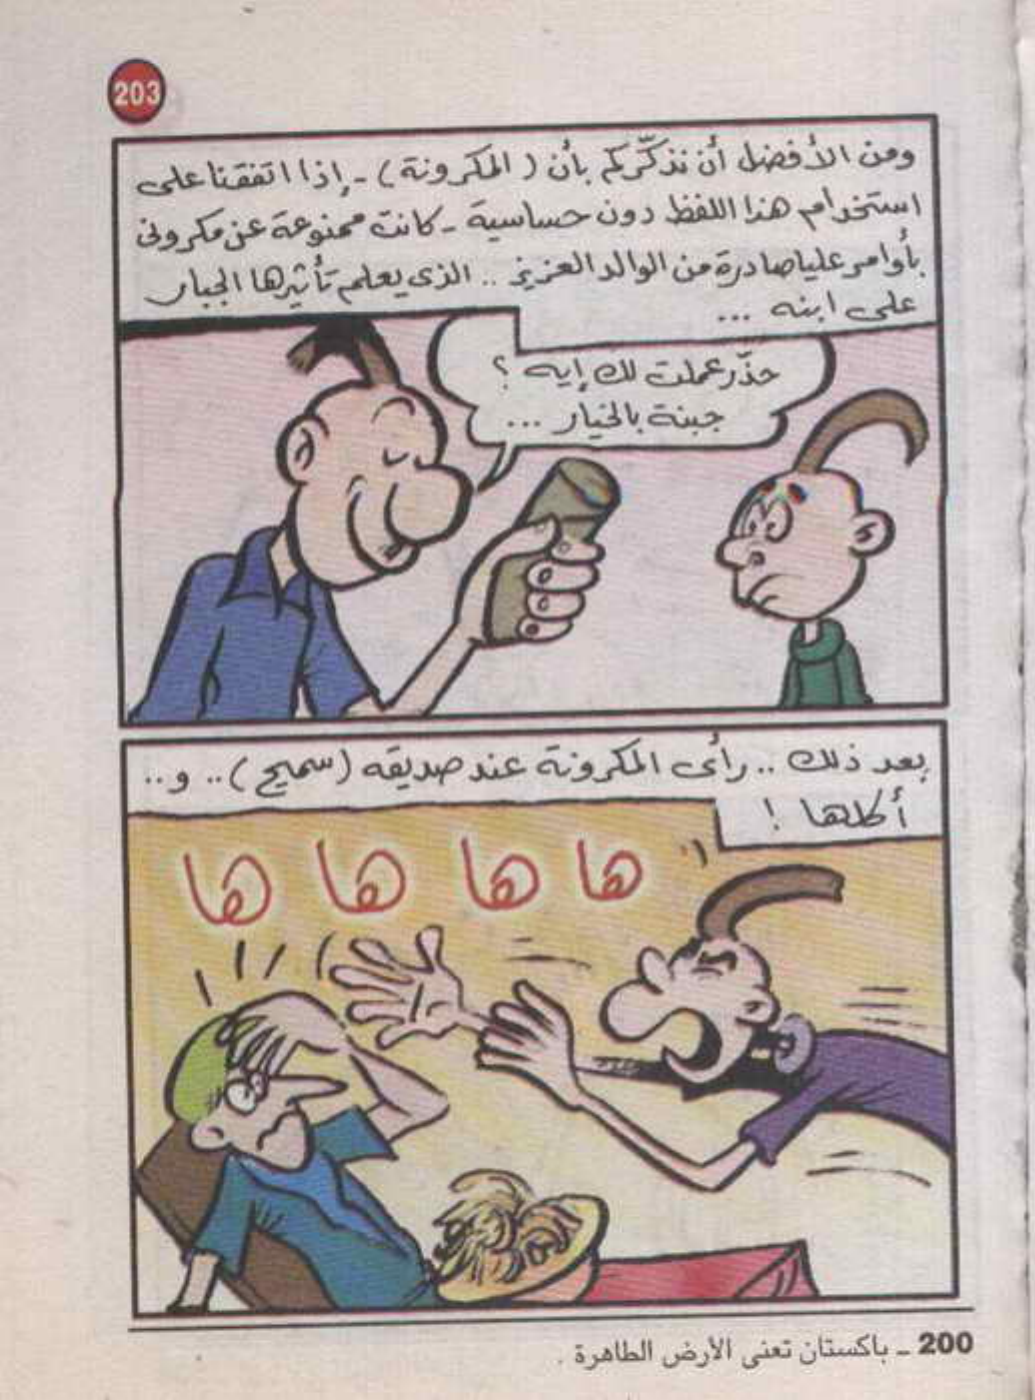 203
ومن الأفضل أن نذكّركم بأن (المكرونة) - إذا اتفقنا على
استخدام هذا اللفظ دون حساسية - كانت ممنوعة عن مكرونى
بأوامر عليا صادرة من الوالد العزيز .. الذى يعلم تأثيرها الجبار
على ابنه ...
حذّر عملت لك إيه ؟
جبنة بالخيار ...
بعد ذلك .. رأى المكرونة عند صديقه (سميح) .. و ..
أكلها !
ها ها ها ها
200 ــ باكستان تعنى الأرض الطاهرة .